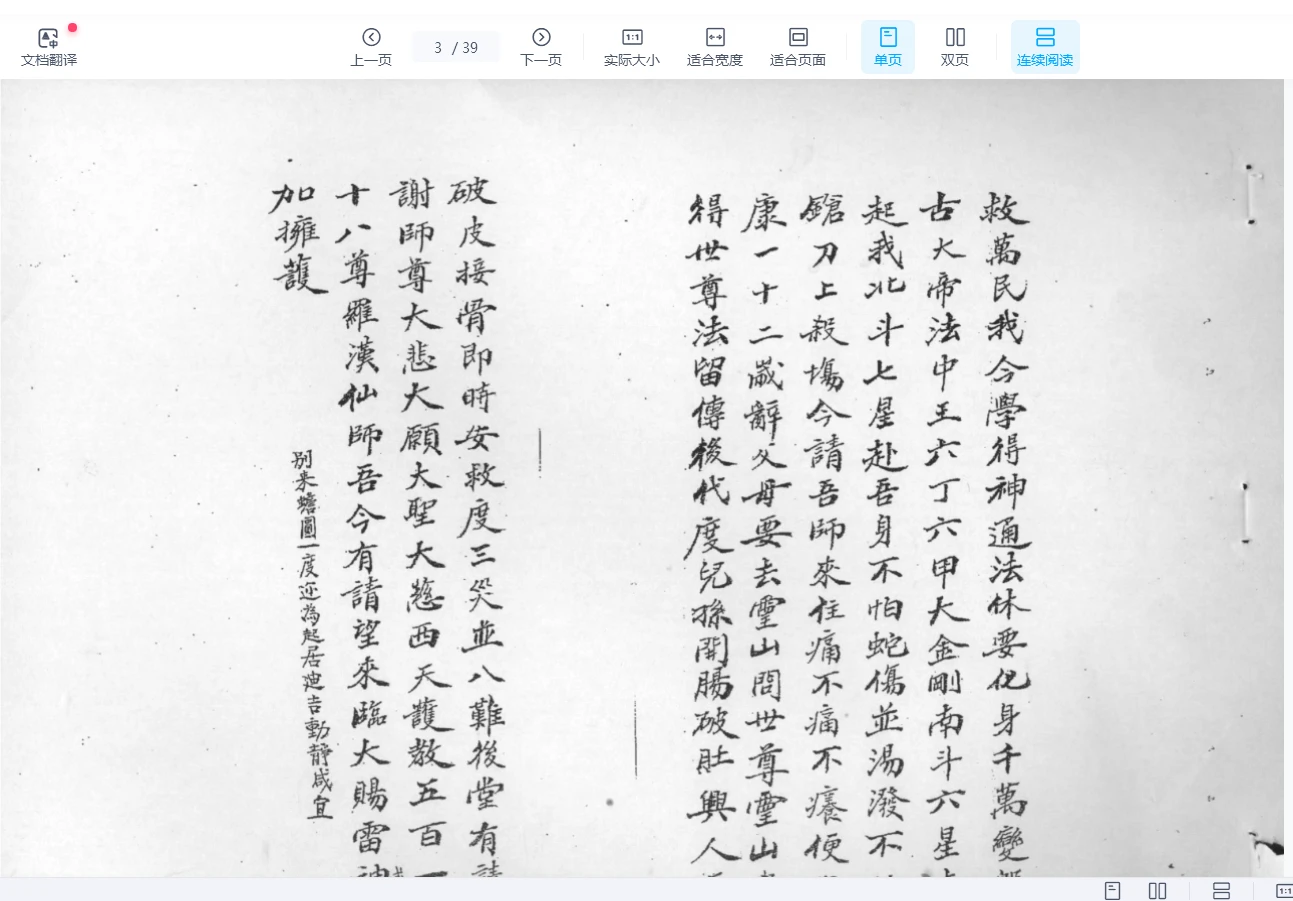 文档翻译
上一页
3 / 39
下一页
实际大小
适合宽度
适合页面
单页
双页
连续阅读
救萬民我今學得神通法休要化身千萬變
古大帝法中王六丁六甲大金剛南斗六星
起我北斗七星赴吾身不怕蛇傷並湯潑不
鎗刀上殺場今請吾師來住痛不痛不癢便
康一十二歲辭父母要去靈山問世尊靈山
得世尊法留傳後代度兒孫開腸破肚興人
破皮接骨即時安救度三災並八難後堂有請
謝師尊大悲大願大聖大慈西天護教五百一
十八尊羅漢仙師吾今有請望來臨大賜雷神
加擁護
別來蟾圓一度近為起居迪吉動靜咸宜
1:1